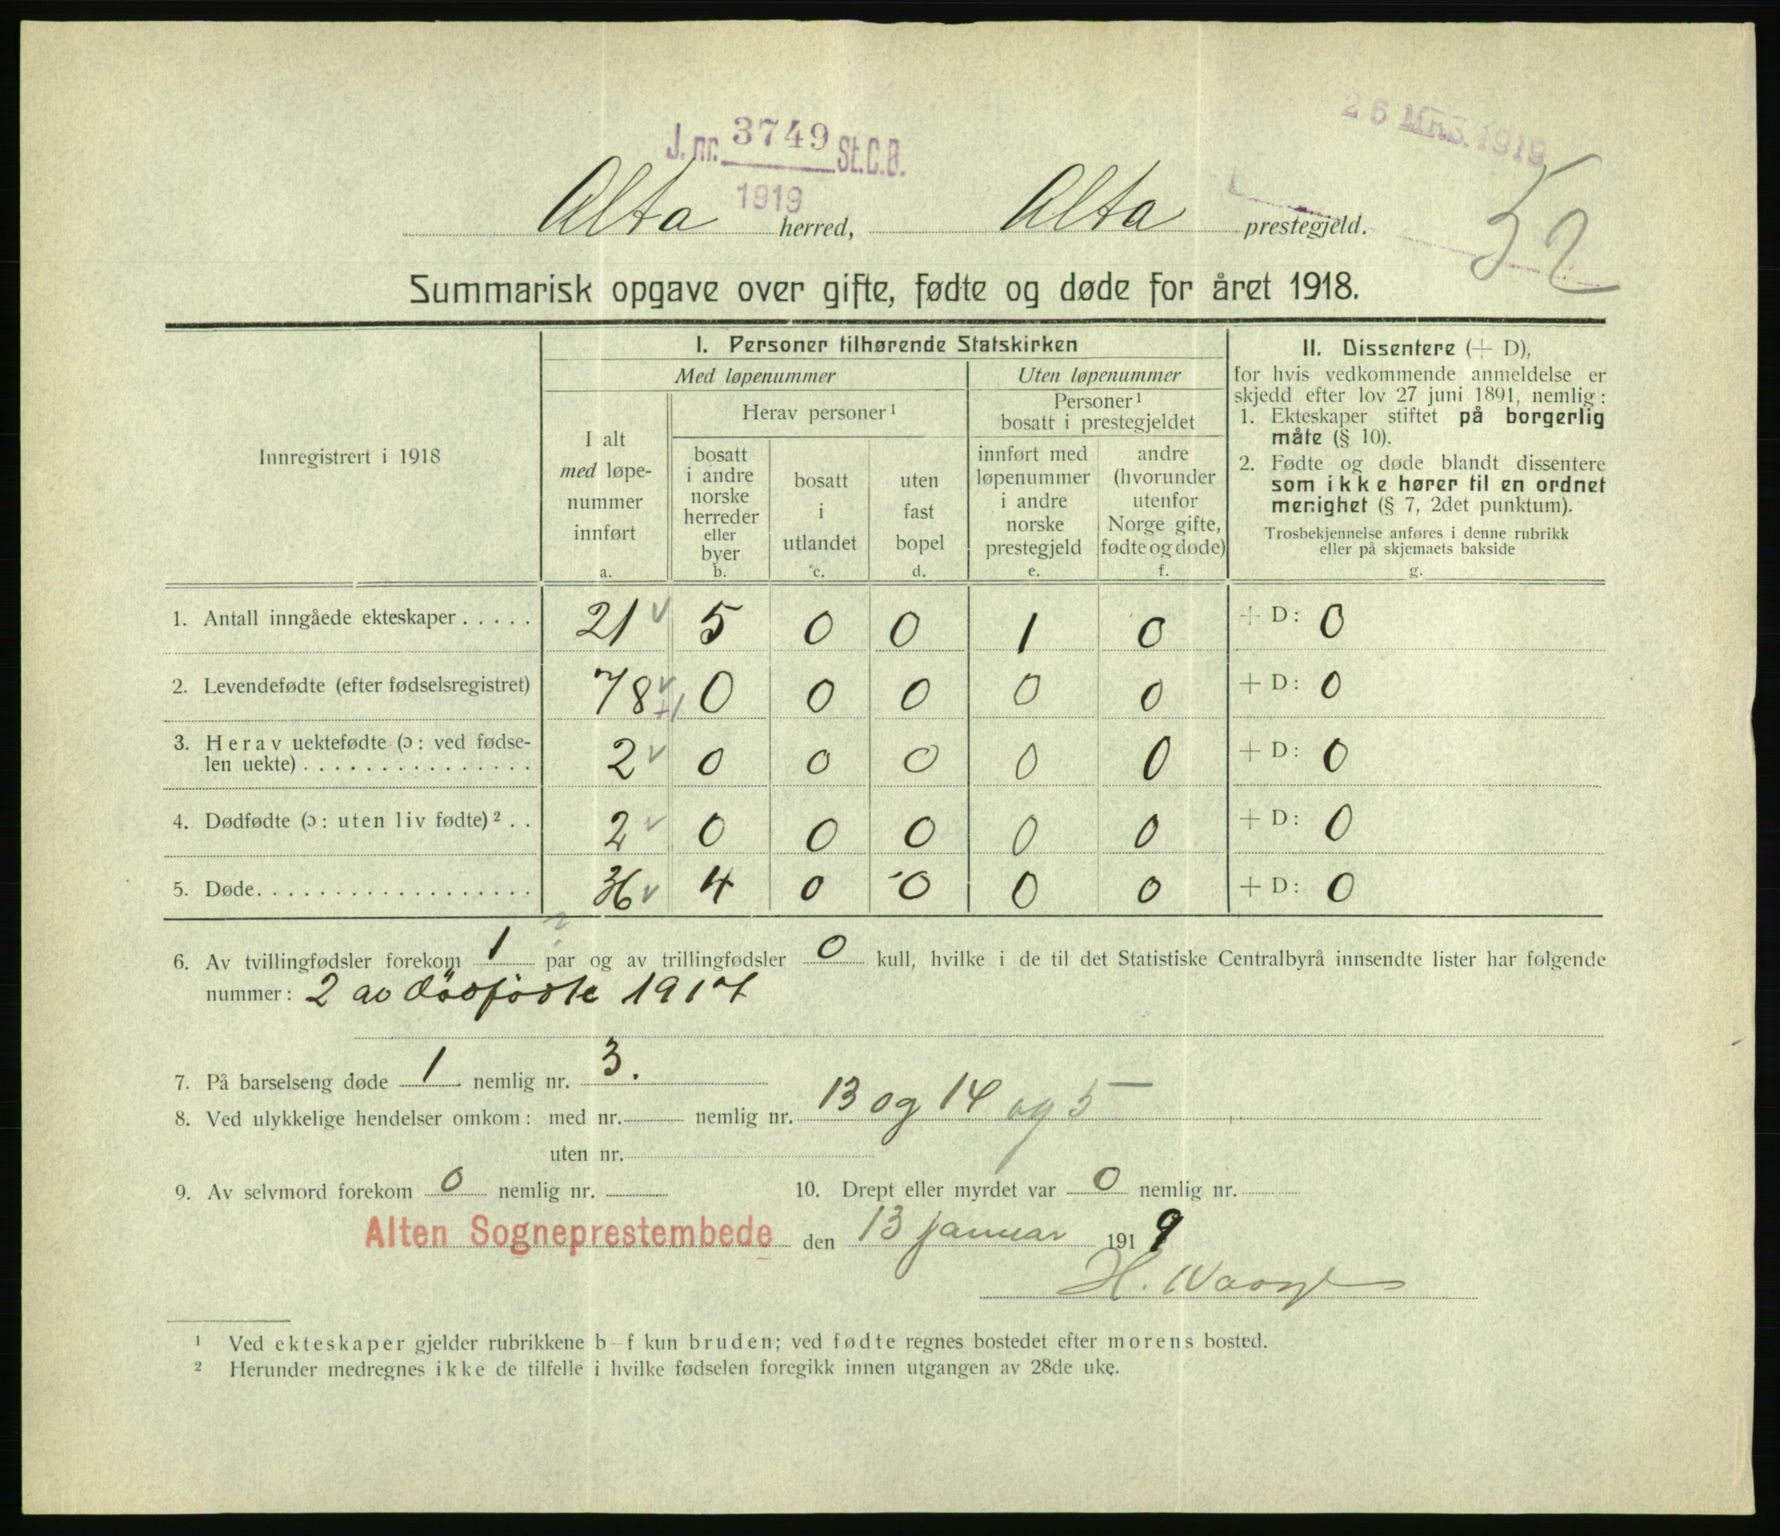 J. nr. 3749 St.C.B.
1919
26 Mrs. 1919
Alta herred, Alta prestegjeld.
52
Summarisk opgave over gifte, fødte og døde for året 1918.
Innregistrert i 1918
I. Personer tilhørende Statskirken
Med løpenummer
Uten løpenummer
I alt
med løpe-
nummer
innført
a.
Herav personer ¹
bosatt
i andre
norske
herreder
eller
byer
b.
bosatt
i
utlandet
c.
uten
fast
bopel
d.
Personer ¹
bosatt i prestegjeldet
innført med
løpenummer
i andre
norske
prestegjeld
e.
andre
(hvorunder
utenfor
Norge gifte,
fødte og døde)
f.
II. Dissentere (+ D),
for hvis vedkommende anmeldelse er
skjedd efter lov 27 juni 1891, nemlig:
1. Ekteskaper stiftet på borgerlig
måte (§ 10).
2. Fødte og døde blandt dissentere
som ikke hører til en ordnet
menighet (§ 7, 2det punktum).
Trosbekjennelse anføres i denne rubrikk
eller på skjemaets bakside
g.
1. Antall inngåede ekteskaper ..... 21 v 5 0 0 1 0 + D: 0
2. Levendefødte (efter fødselsregistret) 78 v +1 0 0 0 0 0 + D: 0
3. Herav uektefødte (ɔ: ved fødse-
len uekte) ............... 2 v 0 0 0 0 0 + D: 0
4. Dødfødte (ɔ: uten liv fødte) ² .. 2 v 0 0 0 0 0 + D: 0
5. Døde .................. 36 v 4 0 -0 0 0 + D: 0
6. Av tvillingfødsler forekom 1 par og av trillingfødsler 0 kull, hvilke i de til det Statistiske Centralbyrå innsendte lister har følgende
nummer: 2 av dødfødte 1917
7. På barselseng døde 1 nemlig nr. 3.
8. Ved ulykkelige hendelser omkom: med nr. nemlig nr. 13 og 14 og 5
uten nr.
9. Av selvmord forekom 0 nemlig nr. 10. Drept eller myrdet var 0 nemlig nr.
Alten Sogneprestembede den 13 januar 1919
¹ Ved ekteskaper gjelder rubrikkene b–f kun bruden; ved fødte regnes bostedet efter morens bosted.
² Herunder medregnes ikke de tilfelle i hvilke fødselen foregikk innen utgangen av 28de uke.